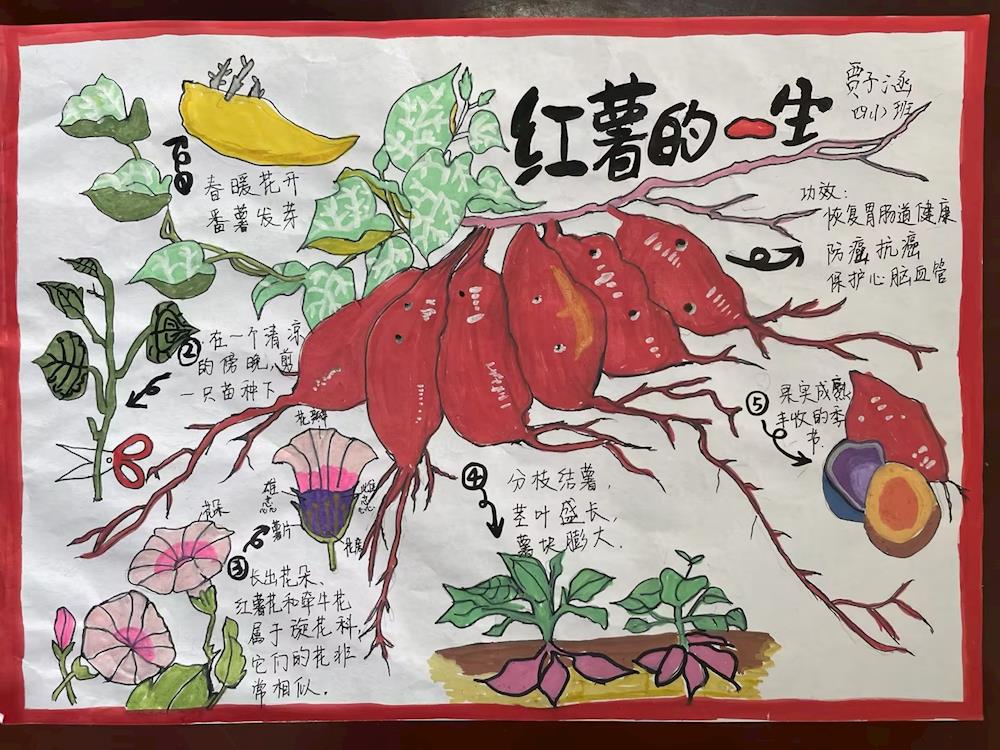 红薯的一生
贾子涵
四(1)班
功效:
恢复胃肠道健康
防癌抗癌
保护心脑血管
①
春暖花开
番薯发芽
②在一个清凉
的傍晚,剪
一只苗种下
③
长出花朵、
红薯花和牵牛花
属于旋花科,
它们的花非
常相似.
花瓣
雄蕊
雌蕊
萼片
花朵
④
分枝结薯,
茎叶盛长,
薯块膨大.
⑤
果实成熟
丰收的季
节.